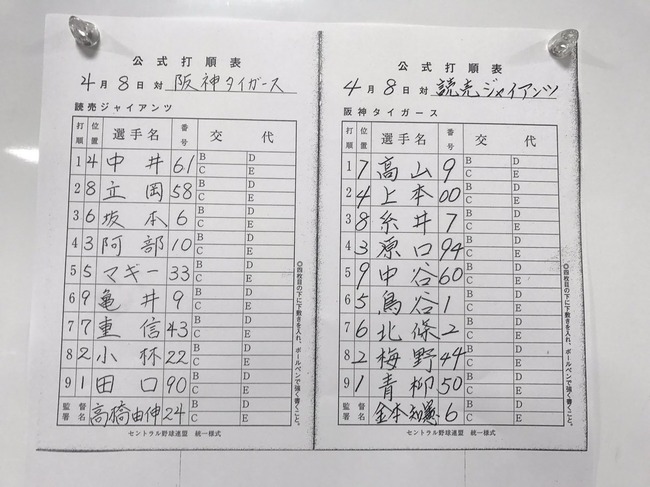 公式打順表
4月8日対 阪神タイガース
読売ジャイアンツ
打順 位置 選手名 番号 交代
1 4 中井 61 B D C E
2 8 立岡 58 B D C E
3 6 坂本 6 B D C E
4 3 阿部 10 B D C E
5 5 マギー 33 B D C E
6 9 亀井 9 B D C E
7 7 重信 43 B D C E
8 2 小林 22 B D C E
9 1 田口 90 B D C E
監督署名 高橋由伸 24 C E
◎四枚目の下に下敷きを入れ、ボールペンで強く書くこと。
セントラル野球連盟 統一様式
公式打順表
4月8日対 読売ジャイアンツ
阪神タイガース
打順 位置 選手名 番号 交代
1 7 高山 9 B D C E
2 4 上本 00 B D C E
3 8 糸井 7 B D C E
4 3 原口 94 B D C E
5 9 中谷 60 B D C E
6 5 鳥谷 1 B D C E
7 6 北條 2 B D C E
8 2 梅野 44 B D C E
9 1 青柳 50 B D C E
監督署名 金本知憲 6 C E
◎四枚目の下に下敷きを入れ、ボールペンで強く書くこと。
セントラル野球連盟 統一様式